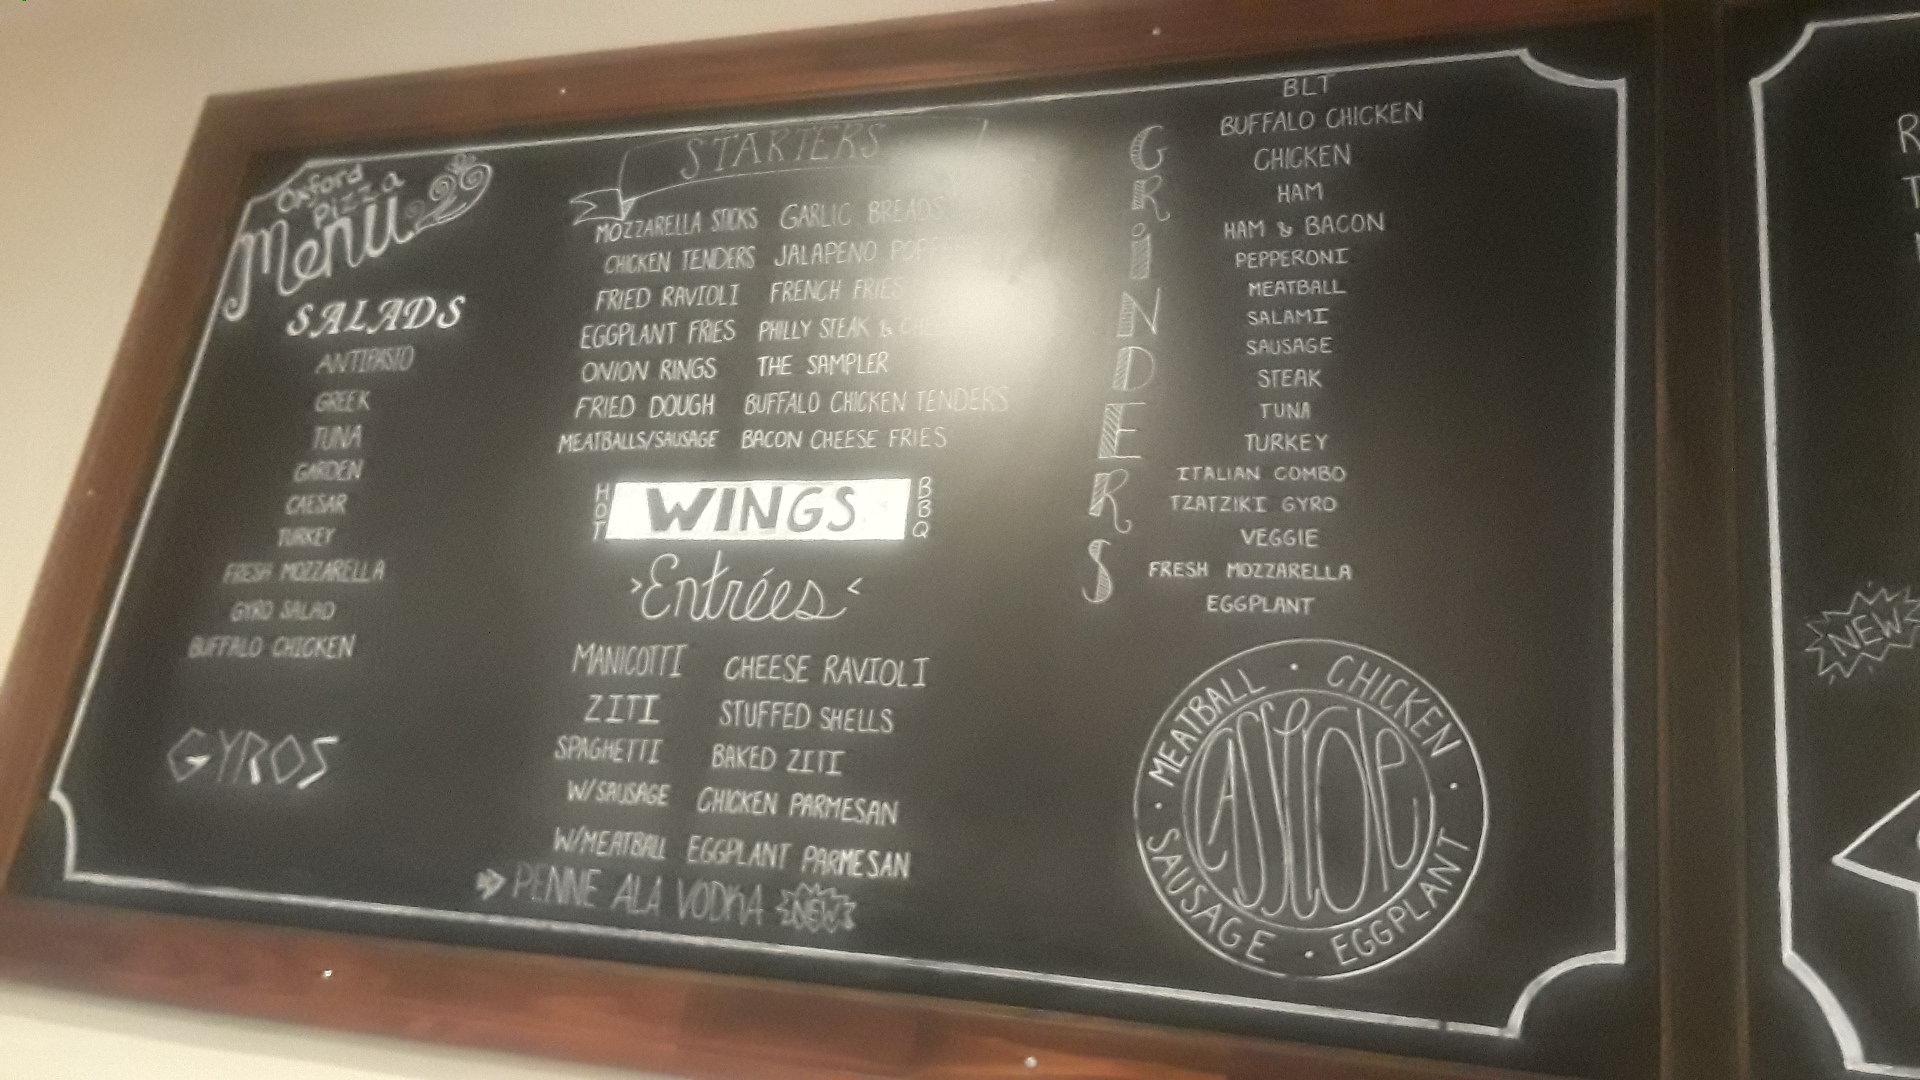 Oxford
Pizza
Menu
SALADS
ANTIPASTO
GREEK
TUNA
GARDEN
CAESAR
TURKEY
FRESH MOZZARELLA
GYRO SALAD
BUFFALO CHICKEN
GYROS
STARTERS
MOZZARELLA STICKS GARLIC BREADS
CHICKEN TENDERS JALAPENO
FRIED RAVIOLI FRENCH FRIES
EGGPLANT FRIES PHILLY STEAK &
ONION RINGS THE SAMPLER
FRIED DOUGH BUFFALO CHICKEN TENDERS
MEATBALLS/SAUSAGE BACON CHEESE FRIES
HOT WINGS BBQ
>Entrées<
MANICOTTI CHEESE RAVIOLI
ZITI STUFFED SHELLS
SPAGHETTI BAKED ZITI
W/SAUSAGE CHICKEN PARMESAN
W/MEATBALL EGGPLANT PARMESAN
PENNE ALA VODKA NEW
GRINDERS
BLT
BUFFALO CHICKEN
CHICKEN
HAM
HAM & BACON
PEPPERONI
MEATBALL
SALAMI
SAUSAGE
STEAK
TUNA
TURKEY
ITALIAN COMBO
TZATZIKI GYRO
VEGGIE
FRESH MOZZARELLA
EGGPLANT
MEATBALL · CHICKEN · EGGPLANT · SAUSAGE ·
NEW